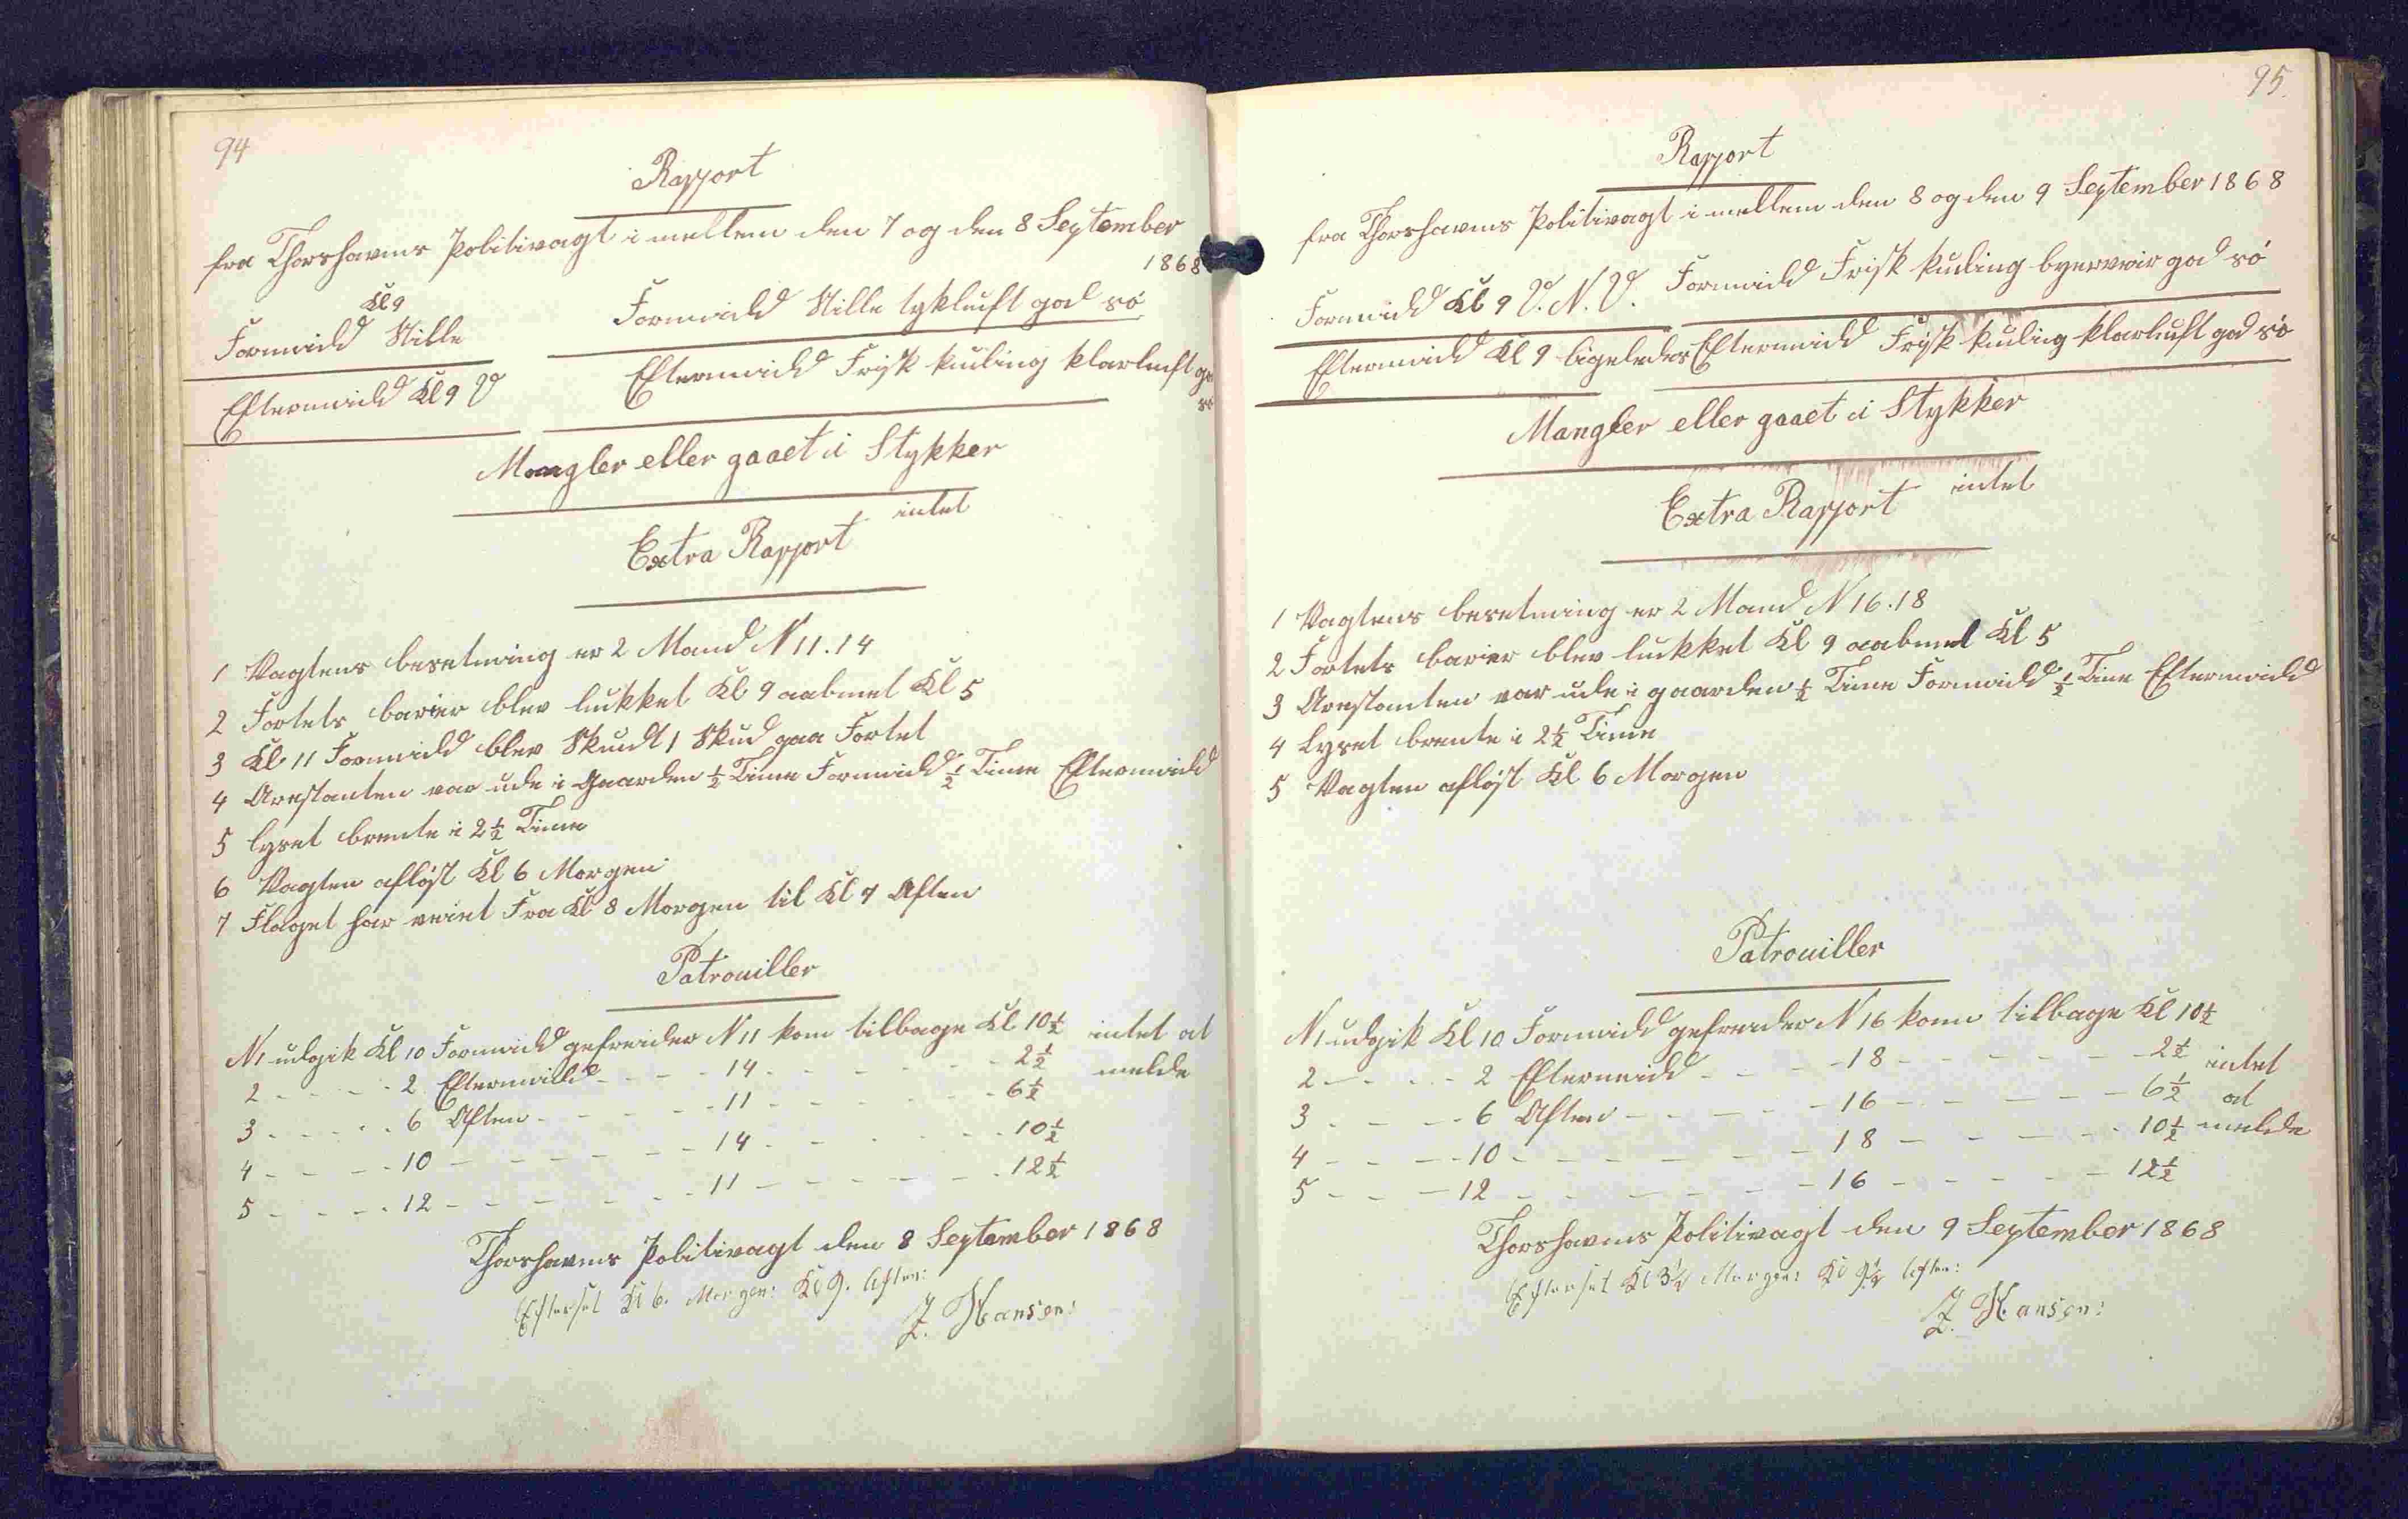 94
Rapport
fra Thorshavns Politivagt i mellem den 7 og den 8 September
1868
Kl 9
Formidd Stille
Formidd Stille tykluft god sö
Eftermidd Kl 9 V
Eftermidd Frisk kuling klarluft go
sö
Mangler eller gaaet i Stykker
intet
Extra Rapport
1 Vagtens besetning er 2 Mand N 11.14
2 Fortets barier blev lukket Kl 9 aabnet Kl 5
3 Kl 11 Formidd blev Skudt 1 Skud paa Fortet
4 Arestanten var ude i Gaarden ½ Time Formidd ½ Time Eftermidd
5 lyset brente i 2½ Time
6 Vagten afløst Kl 6 Morgen
7 Flaget har veiet Fra Kl 8 Morgen til Kl 7 Aften
Patrouiller
N 1 udgik Kl 10 Formidd gefreider N 11 kom tilbage Kl 10½ intet at
2 - - - - 2 Eftermidd - - - - 14 - - - - - - 2½ melde
3 - - - - 6 Aften - - - - - 11 - - - - - - 6½
4 - - - - 10 - - - - - - 14 - - - - - 10½
5 - - - - 12 - - - - - - 11 - - - - - 12½
Thorshavns Politivagt den 8 September 1868
Efterset Kl 6. Morgen: Kl 9. Aften:
J. Hansen:
95
Rapport
fra Thorshavns Politivagt i mellem den 8 og den 9 September 1868
Formidd Kl 9 V. N. V. Formidd Frisk kuling byerveir god sö
Eftermidd Kl 9 ligeledes Eftermidd Frisk kuling klarluft god sö
Mangler eller gaaet i Stykker
intet
Extra Rapport
1 Vagtens besetning er 2 Mand N 16.18
2 Fortets barier blev lukket Kl 9 aabnet Kl 5
3 Arestanten var ude i gaarden ½ Time Formidd ½ Time Eftermidd
4 Lyset brente i 2½ Time
5 Vagten afløst Kl 6 Morgen
Patrouiller
N 1 udgik Kl 10 Formidd gefreider N 16 kom tilbage Kl 10½
2 - - - - 2 Eftermidd - - - - 18 - - - - - - 2½ intet
3 - - - - 6 Aften - - - - - 16 - - - - - 6½ at
4 - - - - 10 - - - - - - 18 - - - - - 10½ melde
5 - - - 12 - - - - - - 16 - - - - - 12½
Thorshavns Politivagt den 9 September 1868
Efterset Kl 3½ Morgen: Kl 9½ Aften:
J. Hansen: